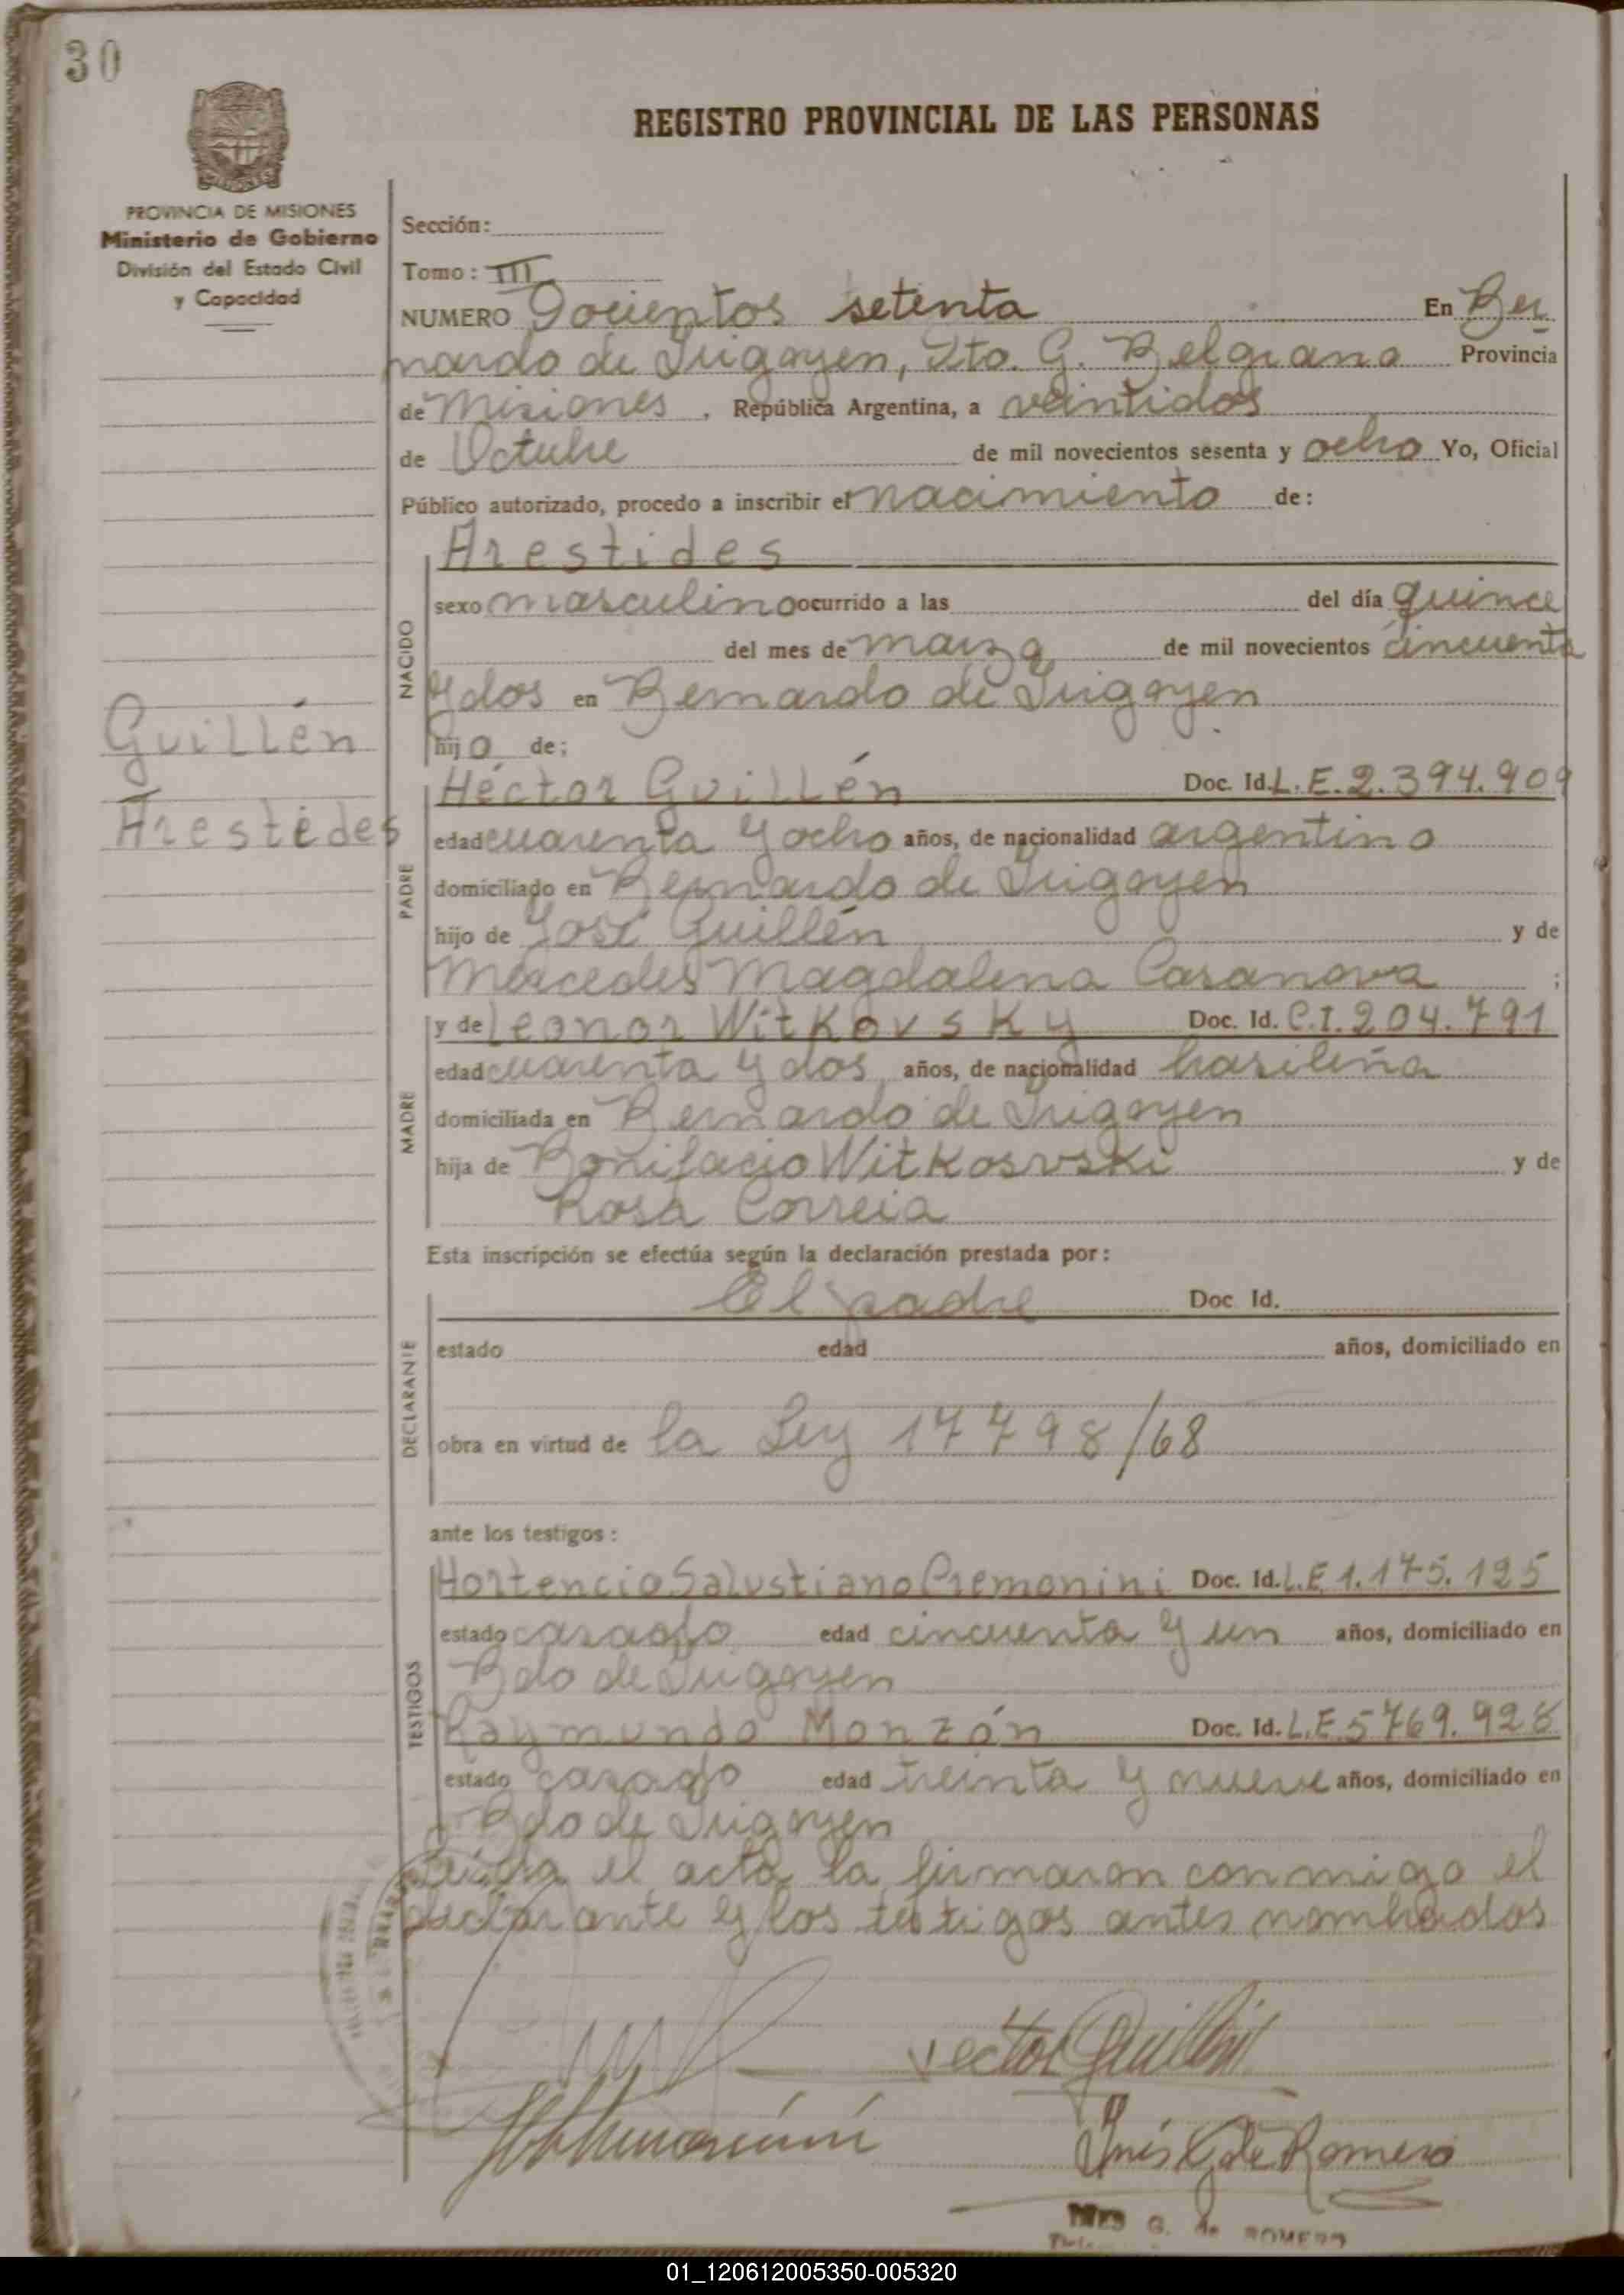 30
REGISTRO PROVINCIAL DE LAS PERSONAS
PROVINCIA DE MISIONES
Ministerio de Gobierno
División del Estado Civil
y Capacidad
Sección:
Tomo: III
NUMERO Docientos setenta En Ber
nardo de Irigoyen, Dto. G. Belgrano Provincia
de Misiones, República Argentina, a veintidos
de Octubre de mil novecientos sesenta y ocho Yo, Oficial
Público autorizado, procedo a inscribir el nacimiento de:
Arestides
NACIDO
sexo masculino ocurrido a las del día quince
del mes de marzo de mil novecientos cincuenta
y dos en Bernardo de Irigoyen
hijo de;
Guillén
Arestides
PADRE
Héctor Guillén Doc. Id. L.E. 2.394.909
edad cuarenta y ocho años, de nacionalidad argentino
domiciliado en Bernardo de Irigoyen
hijo de José Guillén y de
Mercedes Magdalena Casanova ;
MADRE
y de Leonor Witkovsky Doc. Id. C.I. 204.791
edad cuarenta y dos años, de nacionalidad brasileña
domiciliada en Bernardo de Irigoyen
hija de Bonifacio Witkosvski y de
Rosa Correia
Esta inscripción se efectúa según la declaración prestada por:
DECLARANTE
El padre Doc Id.
estado edad años, domiciliado en
obra en virtud de la Ley 17798/68
ante los testigos:
TESTIGOS
Hortencio Salustiano Cremonini Doc. Id. L.E 1.175.125
estado casado edad cincuenta y un años, domiciliado en
Bdo de Irigoyen
Raymundo Monzón Doc. Id. L.E 5769.928
estado casado edad treinta y nueve años, domiciliado en
Bdo de Irigoyen
Leida el acta la firmaron conmigo el
declarante y los testigos antes nombrados
Hector Guillén
Inés G. de Romero
INES G. de ROMERO
01_120612005350-005320